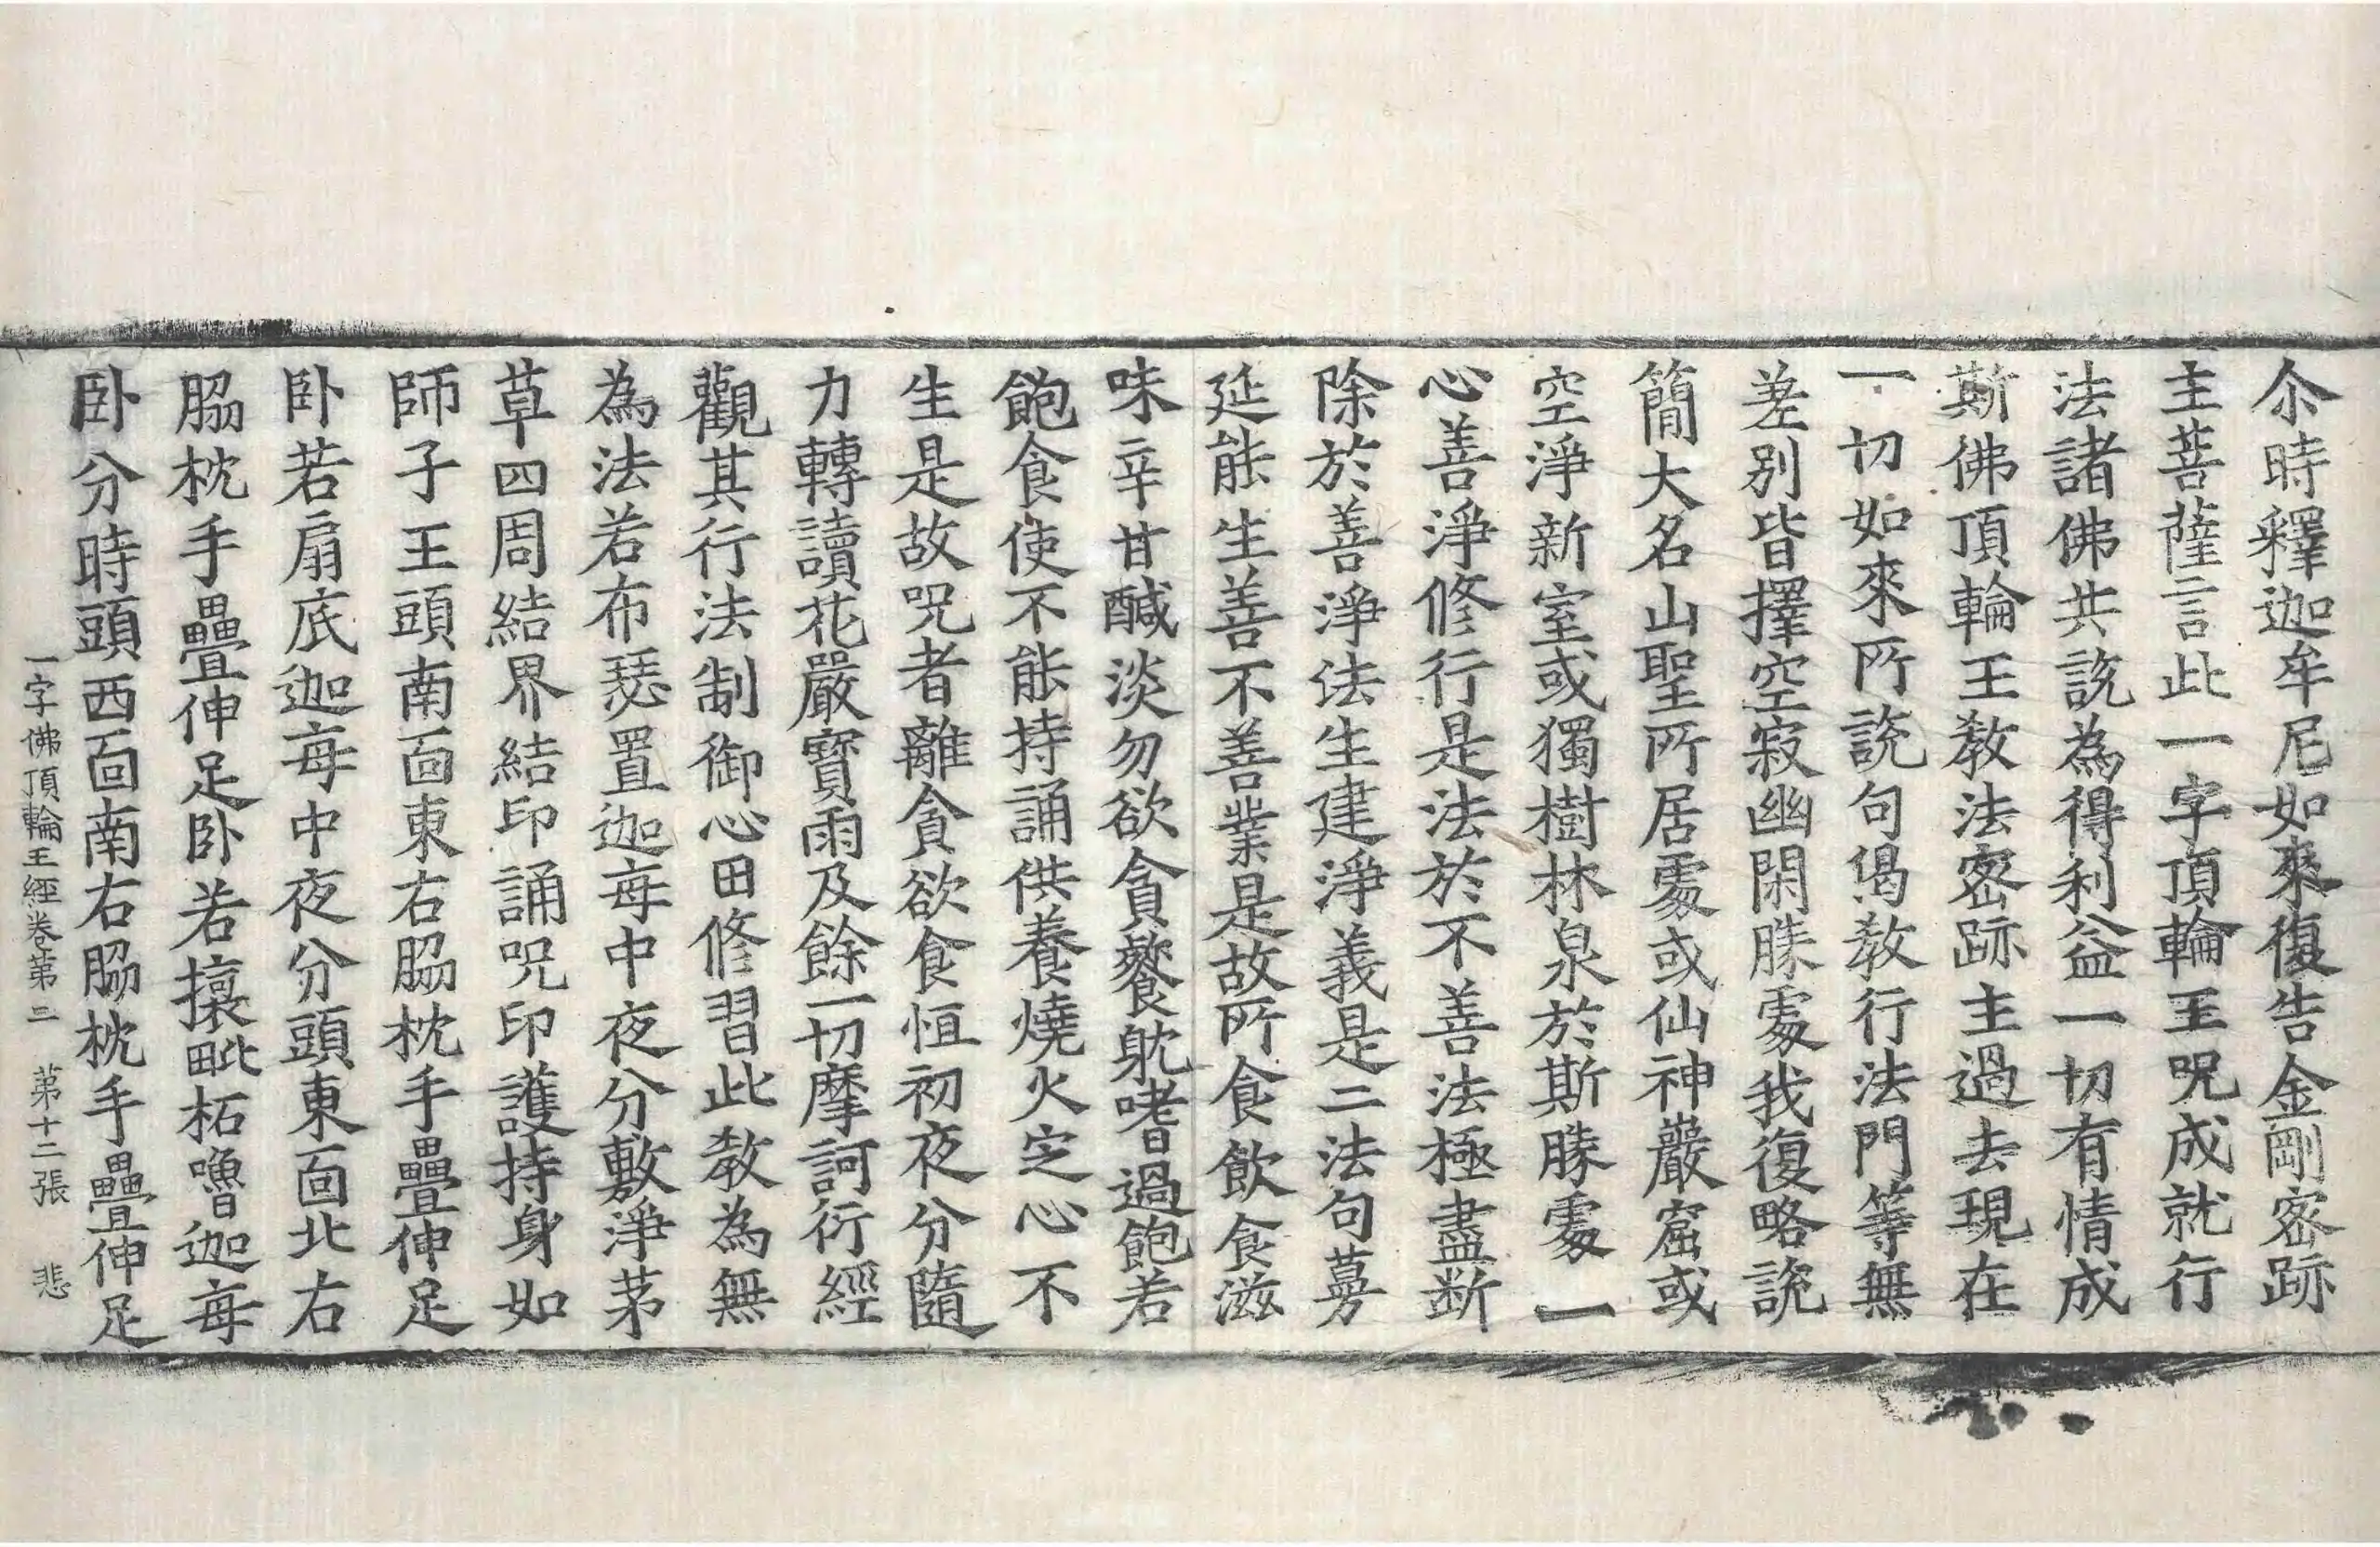 尒時釋迦牟尼如來復告金剛密跡
主菩薩言此一字頂輪王呪成就行
法諸佛共說為得利益一切有情成
斯佛頂輪王教法密跡主過去現在
一切如來所說句偈教行法門等無
差別皆擇空寂幽閑勝處我復略說
簡大名山聖所居處或仙神巖窟或
空淨新室或獨樹林泉於斯勝處一
心善淨修行是法於不善法極盡断
除於善淨法生建淨義是二法句蔓
延能生善不善業是故所食飲食滋
味辛甘醎淡勿欲貪餮躭嗜過飽若
飽食使不能持誦供養燒火定心不
生是故呪者離貪欲食恒初夜分隨
力轉讀花嚴寶雨及餘一切摩訶衍經
觀其行法制御心田修習此教為無
為法若布瑟置迦每中夜分敷淨茅
草四周結界結印誦呪印護持身如
師子王頭南面東右脇枕手疊伸足
卧若扇底迦每中夜分頭東面北右
脇枕手疊伸足卧若攘毗柘嚕迦每
卧分時頭西面南右脇枕手疊伸足
一字佛頂輪王經卷第二 第十二張 悲